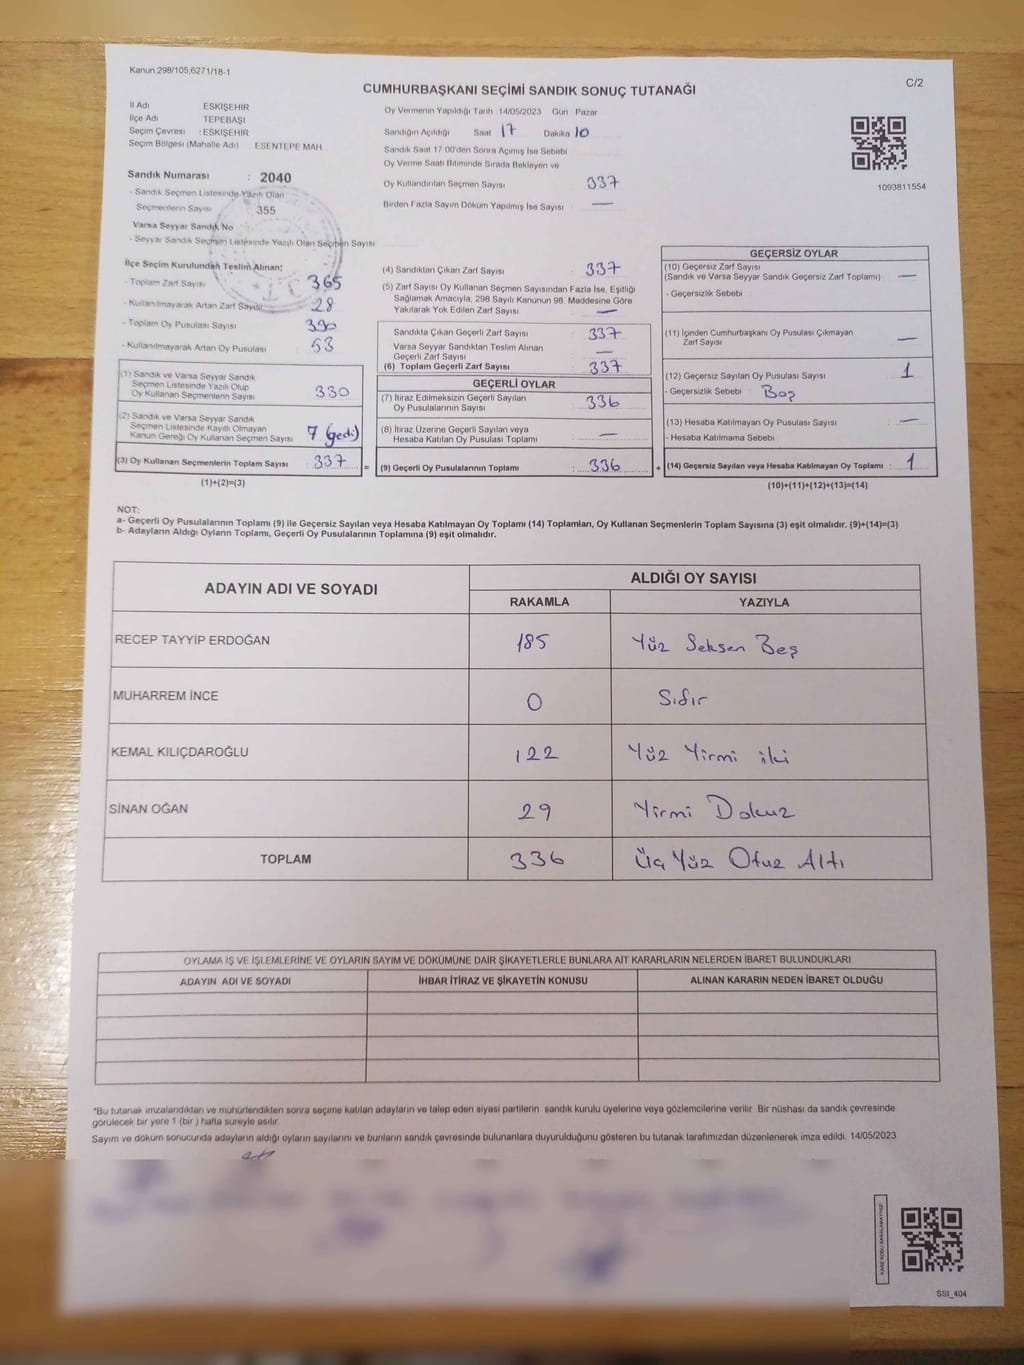 Kanun,298/105,6271/18-1
C/2
CUMHURBAŞKANI SEÇİMİ SANDIK SONUÇ TUTANAĞI
İl Adı ESKİŞEHİR
İlçe Adı TEPEBAŞI
Seçim Çevresi : ESKİŞEHİR
Seçim Bölgesi (Mahalle Adı) ESENTEPE MAH
Sandık Numarası : 2040
- Sandık Seçmen Listesinde Yazılı Olan
Seçmenlerin Sayısı 355
Varsa Seyyar Sandık No
- Seyyar Sandık Seçmen Listesinde Yazılı Olan Seçmen Sayısı
Oy Vermenin Yapıldığı Tarih 14/05/2023 Gün Pazar
Sandığın Açıldığı Saat 17 Dakika 10
Sandık Saat 17:00'den Sonra Açımış İse Sebebi
Oy Verme Saati Bitiminde Sırada Bekleyen ve
Oy Kullandırılan Seçmen Sayısı 337
Birden Fazla Sayım Döküm Yapılmış İse Sayısı —
1093811554
İlçe Seçim Kurulundan Teslim Alınan;
- Toplam Zarf Sayısı 365
- Kullanılmayarak Artan Zarf Sayısı 28
- Toplam Oy Pusulası Sayısı 390
- Kullanılmayarak Artan Oy Pusulası 53
(1) Sandık ve Varsa Seyyar Sandık
Seçmen Listesinde Yazılı Olup
Oy Kullanan Seçmenlerin Sayısı 330
(2) Sandık ve Varsa Seyyar Sandık
Seçmen Listesinde Kayıtlı Olmayan
Kanun Gereği Oy Kullanan Seçmen Sayısı 7 (yedi)
(3) Oy Kullanan Seçmenlerin Toplam Sayısı 337 =
(1)+(2)=(3)
(4) Sandıktan Çıkan Zarf Sayısı 337
(5) Zarf Sayısı Oy Kullanan Seçmen Sayısından Fazla İse, Eşitliği
Sağlamak Amacıyla, 298 Sayılı Kanunun 98. Maddesine Göre
Yakılarak Yok Edilen Zarf Sayısı —
Sandıkta Çıkan Geçerli Zarf Sayısı 337
Varsa Seyyar Sandıktan Teslim Alınan
Geçerli Zarf Sayısı —
(6) Toplam Geçerli Zarf Sayısı 337
GEÇERLİ OYLAR
(7) İtiraz Edilmeksizin Geçerli Sayılan
Oy Pusulalarının Sayısı 336
(8) İtiraz Üzerine Geçerli Sayılan veya
Hesaba Katılan Oy Pusulası Toplamı —
(9) Geçerli Oy Pusulalarının Toplamı : 336 +
GEÇERSİZ OYLAR
(10) Geçersiz Zarf Sayısı
(Sandık ve Varsa Seyyar Sandık Geçersiz Zarf Toplamı) —
- Geçersizlik Sebebi
(11) İçinden Cumhurbaşkanı Oy Pusulası Çıkmayan
Zarf Sayısı —
(12) Geçersiz Sayılan Oy Pusulası Sayısı 1
- Geçersizlik Sebebi Boş
(13) Hesaba Katılmayan Oy Pusulası Sayısı —
- Hesaba Katılmama Sebebi
(14) Geçersiz Sayılan veya Hesaba Katılmayan Oy Toplamı : 1
(10)+(11)+(12)+(13)=(14)
NOT:
a- Geçerli Oy Pusulalarının Toplamı (9) ile Geçersiz Sayılan veya Hesaba Katılmayan Oy Toplamı (14) Toplamları, Oy Kullanan Seçmenlerin Toplam Sayısına (3) eşit olmalıdır. (9)+(14)=(3)
b- Adayların Aldığı Oyların Toplamı, Geçerli Oy Pusulalarının Toplamına (9) eşit olmalıdır.
ADAYIN ADI VE SOYADI
ALDIĞI OY SAYISI
RAKAMLA YAZIYLA
RECEP TAYYİP ERDOĞAN 185 Yüz Seksen Beş
MUHARREM İNCE 0 Sıfır
KEMAL KILIÇDAROĞLU 122 Yüz Yirmi iki
SİNAN OĞAN 29 Yirmi Dokuz
TOPLAM 336 Üç Yüz Otuz Altı
OYLAMA İŞ VE İŞLEMLERİNE VE OYLARIN SAYIM VE DÖKÜMÜNE DAİR ŞİKAYETLERLE BUNLARA AİT KARARLARIN NELERDEN İBARET BULUNDUKLARI
ADAYIN ADI VE SOYADI İHBAR İTİRAZ VE ŞİKAYETİN KONUSU ALINAN KARARIN NEDEN İBARET OLDUĞU
*Bu tutanak imzalandıktan ve mühürlendikten sonra seçime katılan adayların ve talep eden siyasi partilerin sandık kurulu üyelerine veya gözlemcilerine verilir. Bir nüshası da sandık çevresinde
görülecek bir yere 1 (bir ) hafta süreyle asılır.
Sayım ve döküm sonucunda adayların aldığı oyların sayılarını ve bunların sandık çevresinde bulunanlara duyurulduğunu gösteren bu tutanak tarafımızdan düzenlenerek imza edildi. 14/05/2023
SSI_404